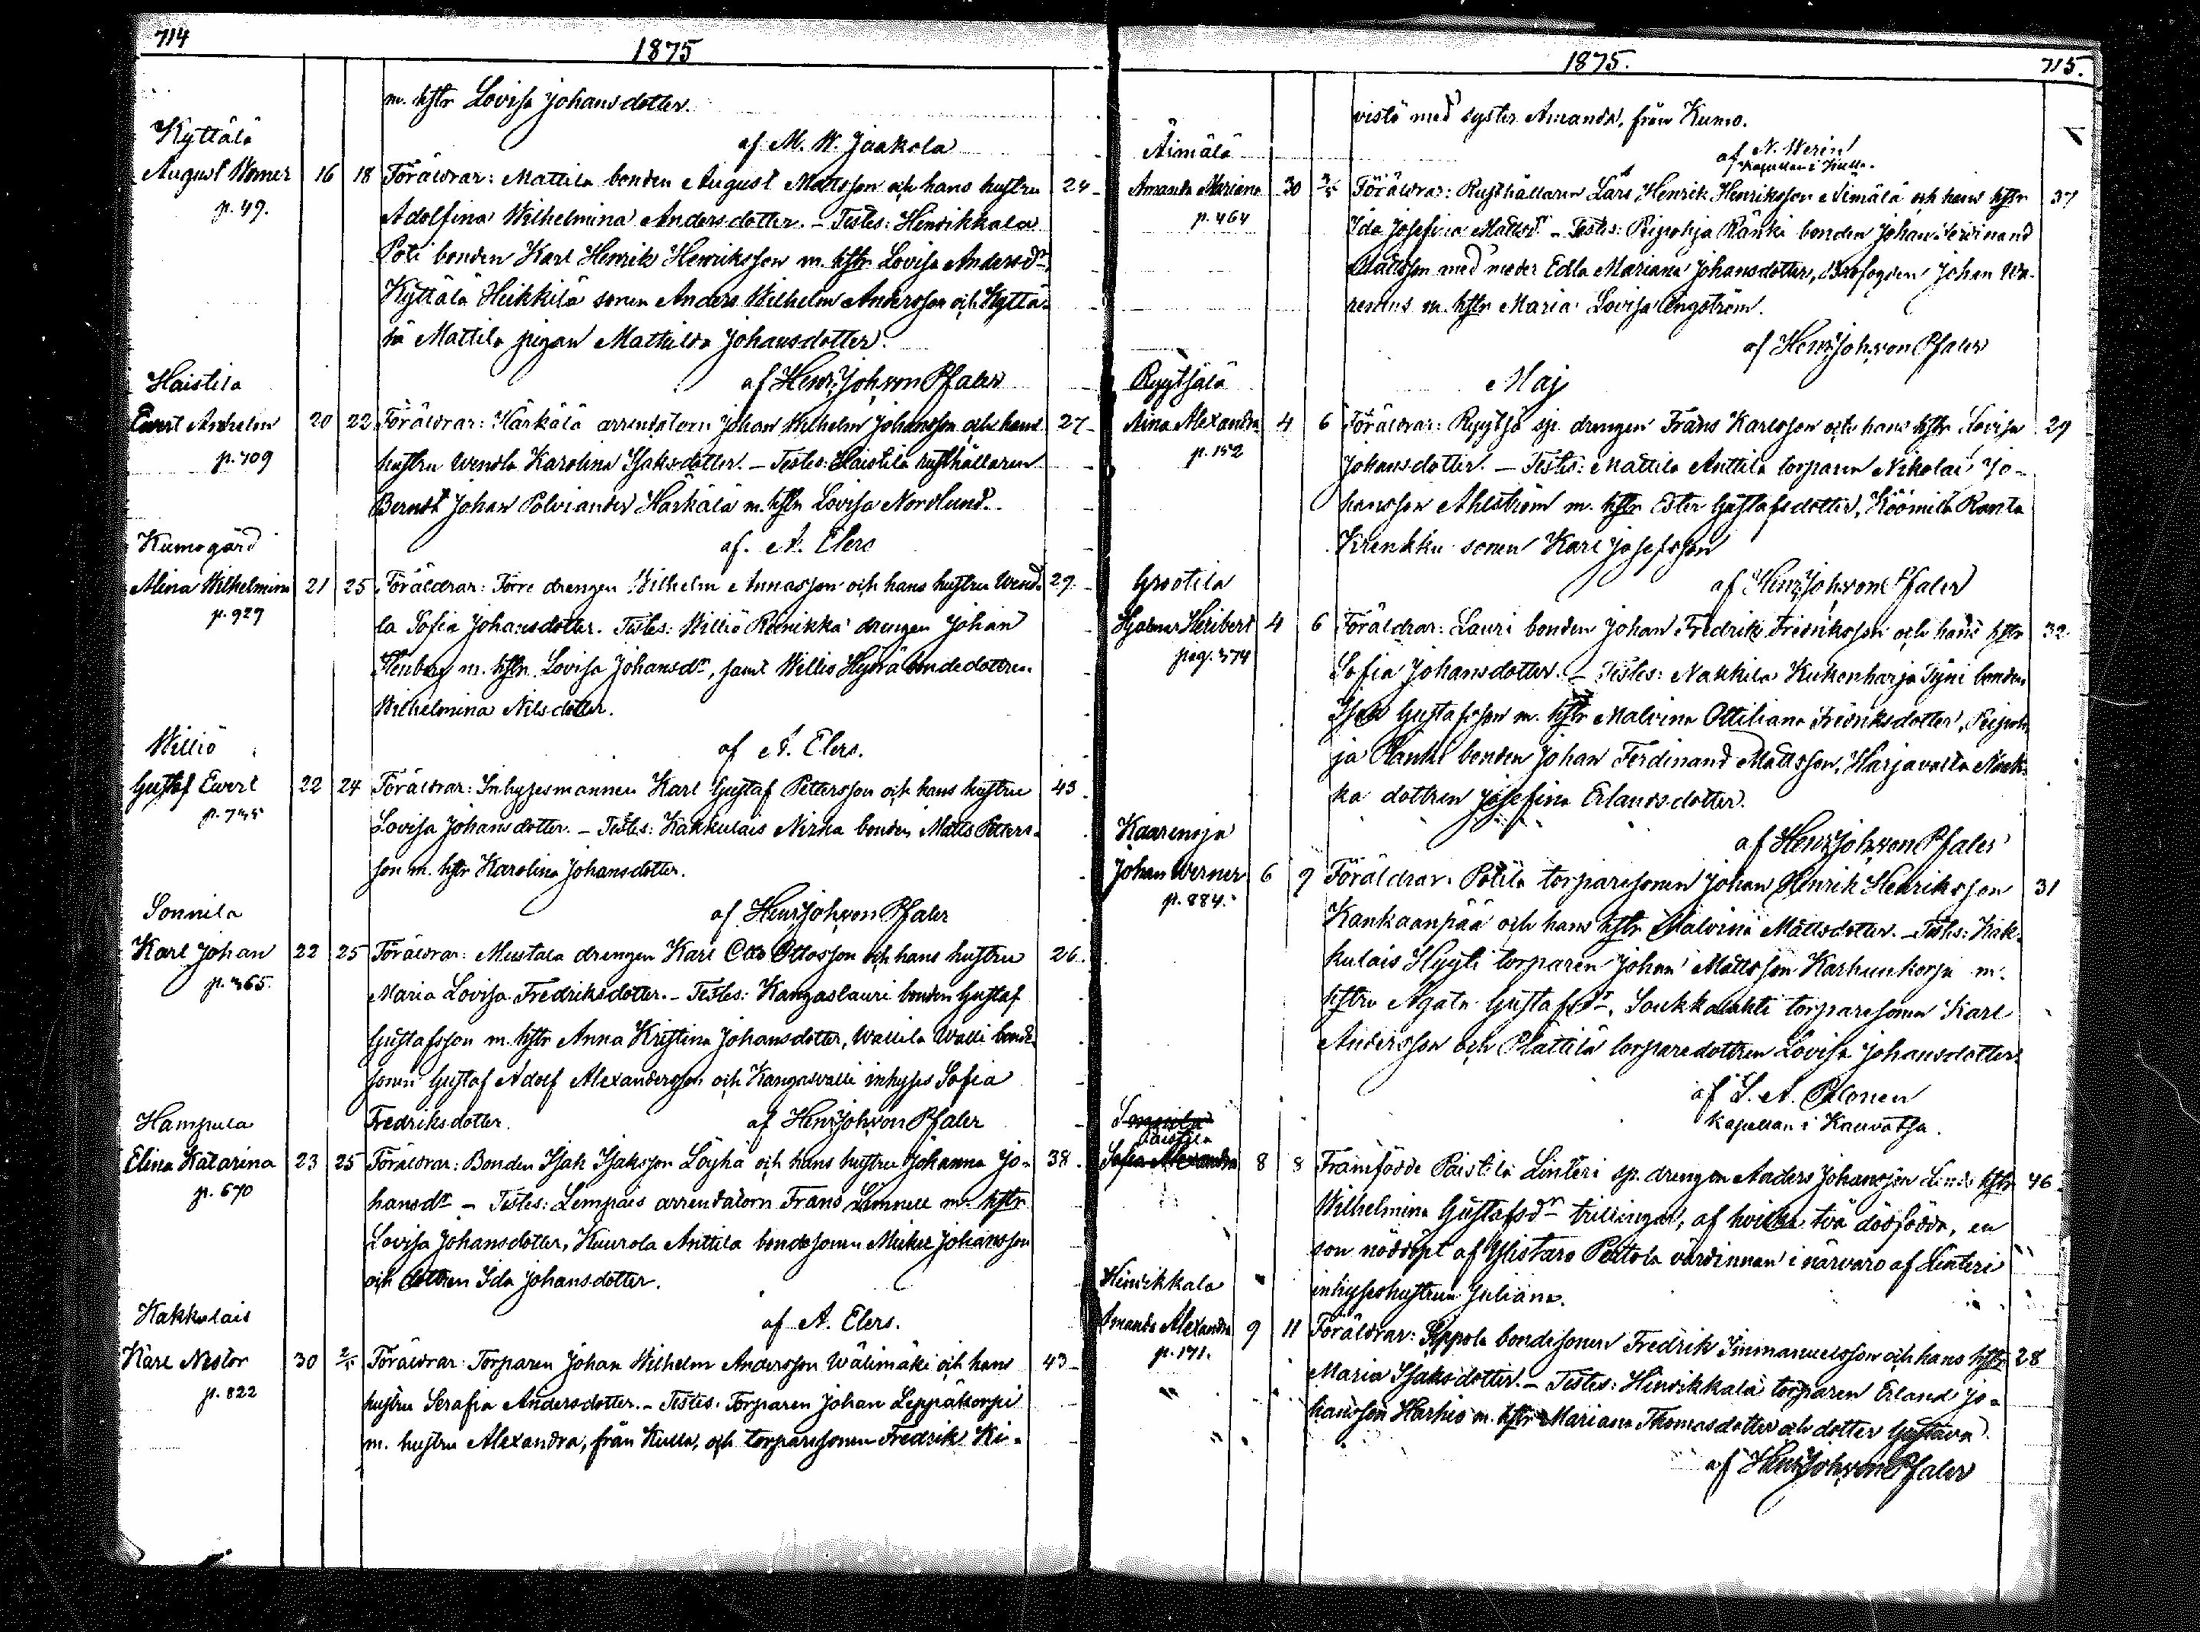 714
1875
m. hstr Lovisa Johansdotter.
af M. W. Jaakola
Kyttälä
August Werner 16 18 Föräldrar: Mattila bonden August Mattsson och hans hustru 24
p. 49.
Adolfina Wilhelmina Andersdotter. – Testes: Henrikkala
Poti bonden Karl Henrik Henriksson m. hstr Lovisa Andersdr,
Kyttälä Heikkilä sonen Anders Wilhelm Andersson och Kyttä-
lä Mattila pigan Mathilda Johansdotter.
af Henr. Joh. von Pfaler
Haistila
Evert Anshelm 20 22 Föräldrar: Härkälä arrendatorn Johan Wilhelm Johansson och hans 27
p. 709
hustru Wendla Karolina Isaksdotter. – Testes: Haistila rusthållaren
Berndt Johan Polviander Härkälä m. hstr Lovisa Nordlund.
af A. Elers
Kumogård
Alina Wilhelmina 21 25 Föräldrar: Torre drengen Wilhelm Annasson och hans hustru Wend- 29
p. 929
la Sofia Johansdotter. Testes: Williö Reinikka drengen Johan
Stenberg m. hstr Lovisa Johansdr, samt Williö Hyrrä bondedottren
Wilhelmina Nilsdotter.
af A. Elers.
Williö
Gustaf Evert 22 24 Föräldrar: Inhysesmannen Karl Gustaf Pettersson och hans hustru 43
p. 735
Lovisa Johansdotter. – Testes: Kakkulais Nirka bonden Matts Petters-
son m. hstr Karolina Johansdotter.
af Henr. Joh. von Pfaler
Sonnila
Karl Johan 22 25 Föräldrar: Mustala drengen Karl Otto Ottosson och hans hustru 26
p. 365
Maria Lovisa Fredriksdotter. – Testes: Kangaslauri bonden Gustaf
Gustafsson m. hstr Anna Kristina Johansdotter, Wallila Walli bonde-
sonen Gustaf Adolf Alexandersson och Kangasvalli inhyses Sofia
Fredriksdotter. af Henr. Joh. von Pfaler
Hampula
Elina Katarina 23 25 Föräldrar: Bonden Isak Isaksson Löyhä och hans hustru Johanna Jo- 38
p. 670
hansdr – Testes: Lempais arrendatorn Frans Linnell m. hstr
Lovisa Johansdotter, Kuurola Anttila bondesonen Mickel Johansson
och dottren Ida Johansdotter.
af A. Elers.
Kakkulais
Karl Nestor 30 2/5 Föräldrar: Torparen Johan Wilhelm Andersson Wälimäki och hans 43
p. 822
hustru Serafia Andersdotter. – Testes: Torparen Johan Leppäkorpi
m. hustru Alexandra, från Kulla, och torparesonen Fredrik Ki-
1875.
715.
vistö med syster Amanda, från Kumo.
af N. Merin
kapellan i Kulla.
Äimälä
Amanda Mariana 30 2/5 Föräldrar: Rusthållaren Lars Henrik Henriksson Äimälä och hans hstr 37
p. 464
Ida Josefina Mattsdr. – Testes: Peipohja Ränki bonden Johan Ferdinand
Mattsson med moder Edla Mariana Johansdotter, Brofogden Johan Wa-
renius m. hstr Maria Lovisa Engström.
af Henr. Joh. von Pfaler
Maj
Ryytsälä
Aina Alexandra 4 6 Föräldrar: Ryytsö sp. drengen Frans Karlsson och hans hstr Lovisa 29
p. 152
Johansdotter. – Testes: Mattila Anttila torparen Nikolai Jo-
hansson Ahlström m. hstr Ester Gustafsdotter, Köömilä Ranta
Krenkku sonen Karl Josefsson
af Henr. Joh. von Pfaler
Grotila
Hjalmar Heribert 4 6 Föräldrar: Lauri bonden Johan Fredrik Fredriksson och hans hstr 32
pag. 374
Sofia Johansdotter. – Testes: Nakkila Kukonharja Tyni bonden
Isak Gustafsson m. hstr Malvina Ottiliana Fredriksdotter, Peipoh-
ja Ränki bonden Johan Ferdinand Mattsson, Harjavalta Näck-
kä dottren Josefina Erlandsdotter.
af Henr. Joh. von Pfaler
Kaarenoja
Johan Werner 6 9 Föräldrar: Potila torparesonen Johan Henrik Henriksson 31
p. 884.
Kankaanpää och hans hstr Malvina Mattsdotter. – Testes: Kak-
kulais Hyyti torparen Johan Mattsson Karhunkorpi m.
hstru Agata Gustafsdr, Soukkalahti torparesonen Karl
Andersson och Plättilä torparedottren Lovisa Johansdotter.
af S. A. Palonen
kapellan i Kauvatsa.
Sonnila
Paistila
Sofia Alexandra 8 8 Framfödde Paistila Linteri sp. drengen Anders Johansson Linds hstr 46
Wilhelmina Gustafsdr trillingar, af hvilka två dödfödda, en
son nöddöpt af Ylistaro Perttola värdinnan i närvaro af Linteri
inhyseshustrun Juliana.
Henrikkala
Amanda Alexandra 9 11 Föräldrar: Seppola bondesonen Fredrik Immanuelsson och hans hstr 28
p. 171.
Maria Isaksdotter. – Testes: Henrikkala torparen Erland Jo-
hansson Harhio m. hstr Mariana Thomasdotter och dotter Gustava.
af Henr. Joh. von Pfaler